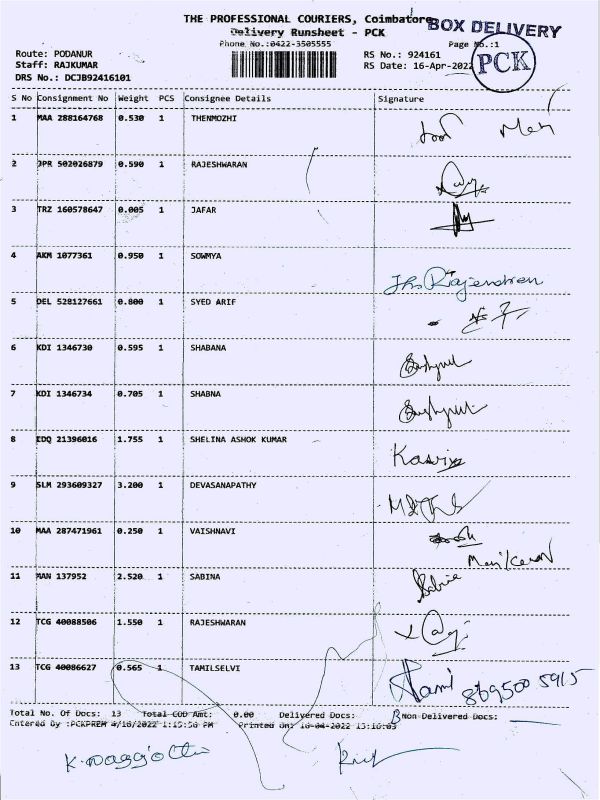 THE PROFESSIONAL COURIERS, Coimbatore
BOX DELIVERY
Delivery Runsheet - PCK
Phone No.:0422-3505555
Page No.:1
Route: PODANUR
RS No.: 924161
PCK
Staff: RAJKUMAR
RS Date: 16-Apr-2022
DRS No.: DCJB92416101
S No Consignment No Weight PCS Consignee Details Signature
1 MAA 288164768 0.530 1 THENMOZHI
2 JPR 502026879 0.590 1 RAJESHWARAN
3 TRZ 160578647 0.005 1 JAFAR
4 AKM 1077361 0.950 1 SOWMYA
Rajendren
5 DEL 528127661 0.800 1 SYED ARIF
6 KDI 1346730 0.595 1 SHABANA
7 KDI 1346734 0.705 1 SHABNA
8 EDQ 21396016 1.755 1 SHELINA ASHOK KUMAR
9 SLM 293609327 3.200 1 DEVASANAPATHY
10 MAA 287471961 0.250 1 VAISHNAVI
11 MAN 137952 2.520 1 SABINA Sabina
12 TCG 40088506 1.550 1 RAJESHWARAN
13 TCG 40086627 0.565 1 TAMILSELVI
Total No. Of Docs: 13 Total COD Amt: 0.00 Delivered Docs: Non Delivered Docs:
Entered By :PCKPREM 4/16/2022 1:15:56 PM Printed On: